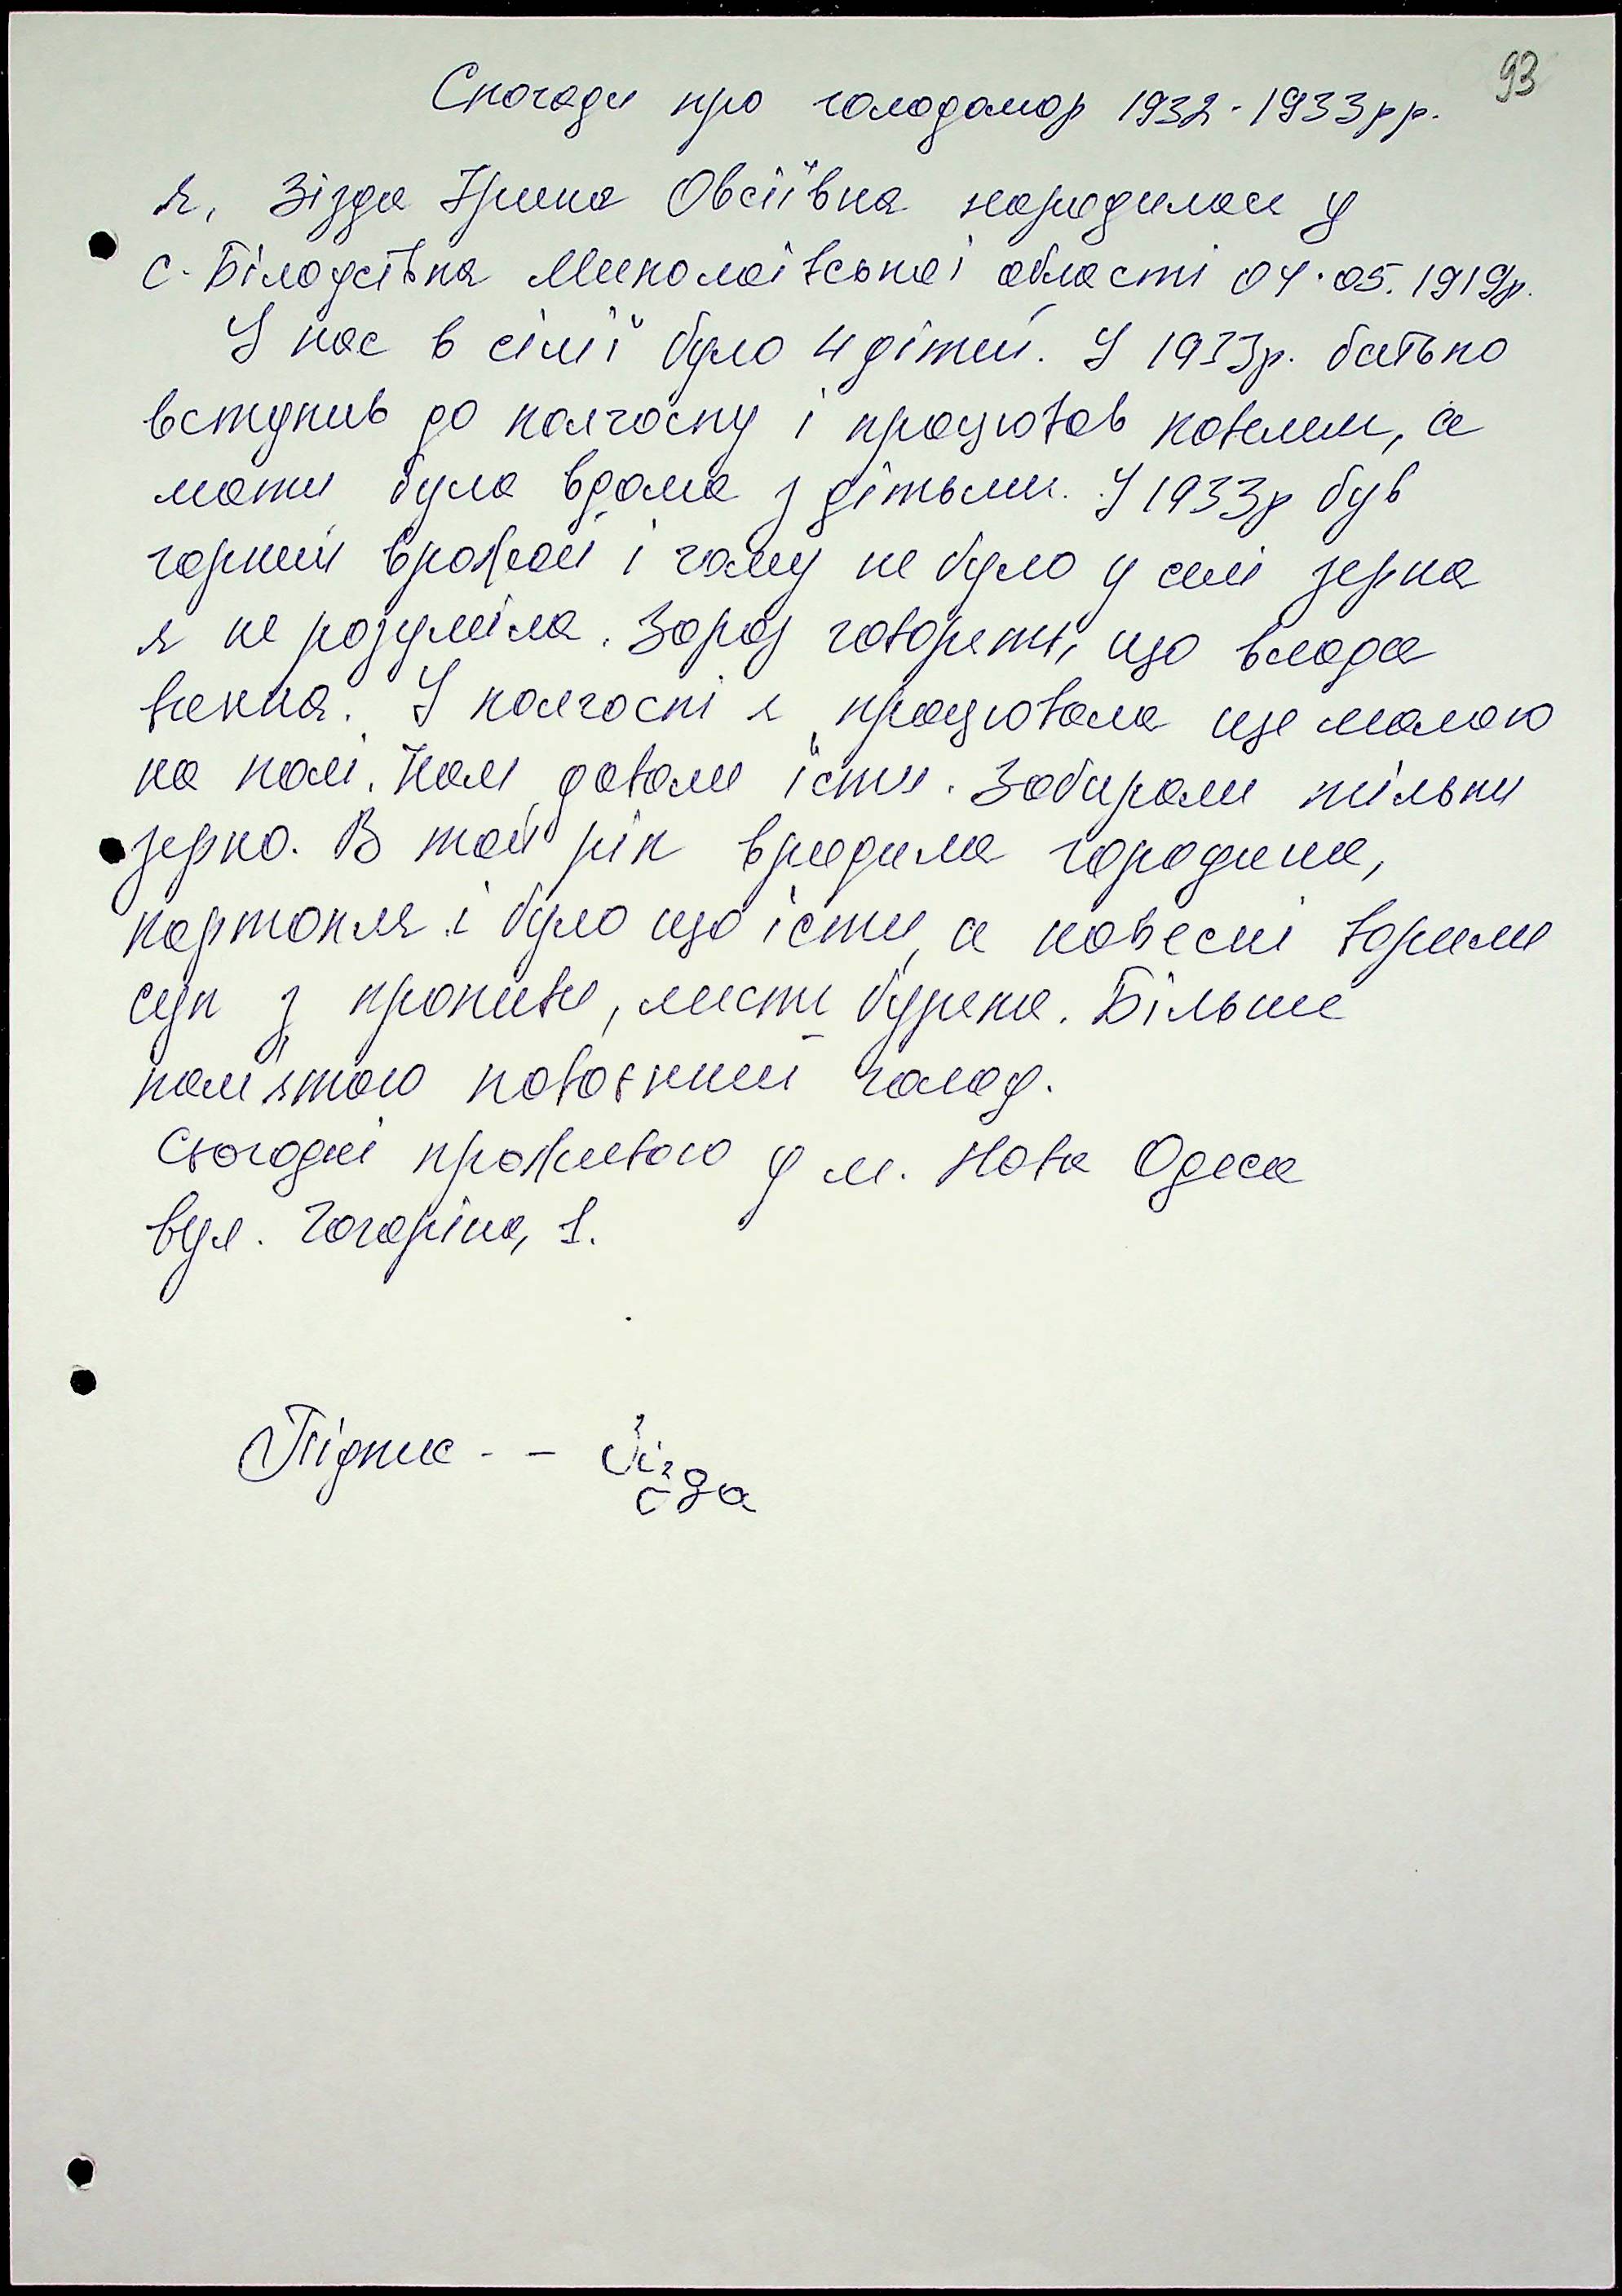 93
Спогади про голодомор 1932-1933рр.
Я, Зізда Ірина Овсіївна народилася у
с. Білоусівка Миколаївської області 04.05.1919р.
У нас в сімії було 4 дітей. У 1933р. батько
вступив до колгоспу і працював ковалем, а
мати була вдома з дітьми. У 1933р був
гарний врожай і чому не було у селі зерна
я не розуміла. Зараз говорять, що влада
винна. У колгоспі я працювала ще малою
на полі. Нам давали їсти. Забирали тільки
зерно. В той рік вродила городина,
картопля і було що їсти, а навесні варили
суп з кропиви, листя буряка. Більше
пам'ятаю повоєнний голод.
Сьогодні проживаю у м. Нова Одеса
вул. Гагаріна, 1.
Підпис - - Зізда